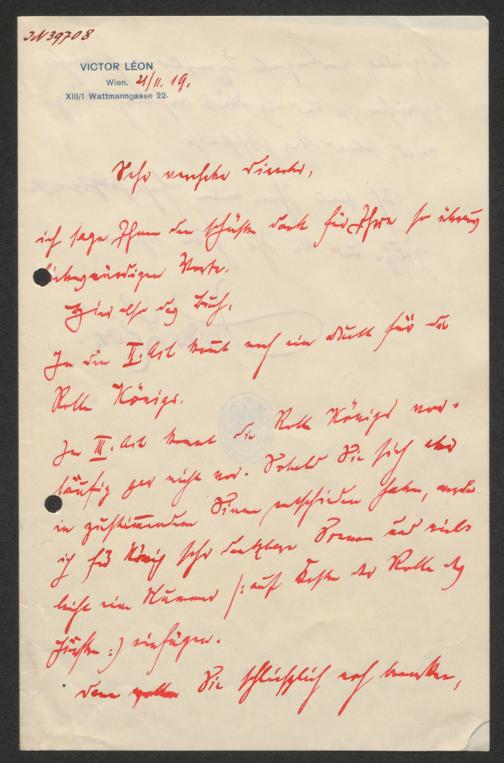 JN39708
VICTOR LÉON
Wien, 21/II. 19.
XIII/1 Wattmanngasse 22.
Sehr verehrter Director,
ich sage Ihnen den schönsten Dank für Ihre so überaus
liebenswürdigen Worte.
Hier also das Buch.
In den II. Akt kommt noch ein Duett für die
Rolle Königs.
Im III. Akt kommt die Rolle Königs vor-
läufig gar nicht vor. Sobald Sie sich aber
in zustimmendem Sinne entschieden haben, werde
ich für König sehr dankbare Szenen und viel-
leicht eine Nummer /: auf Kosten der Rolle des
:/ einfügen.
Sie schließlich noch bemerken,